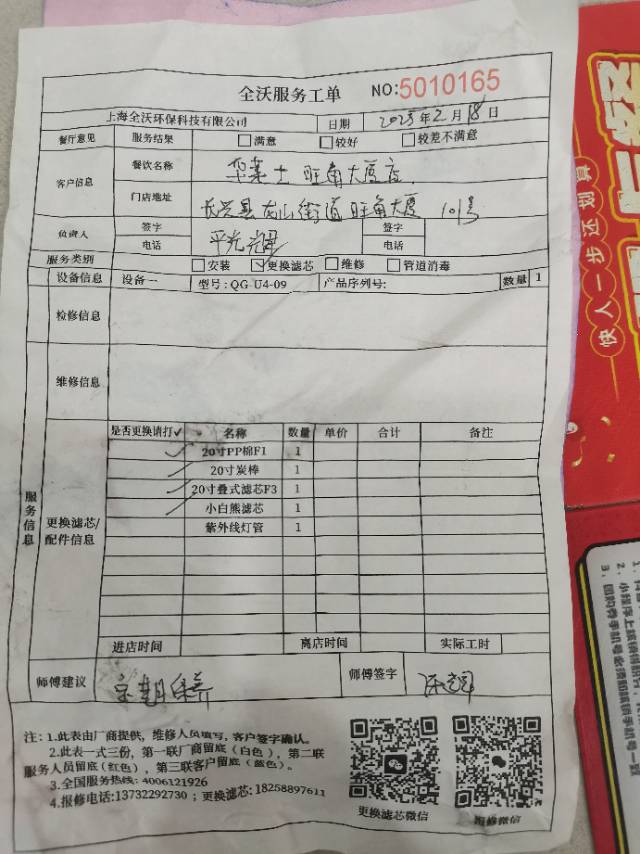 全沃服务工单 NO:5010165
上海全沃环保科技有限公司 日期 2025年2月18日
餐厅意见 服务结果 满意 较好 较差不满意
客户信息 餐饮名称 华莱士 旺角大厦店
门店地址 长兴县龙山街道旺角大厦 101号
负责人 签字 签字
电话 电话
服务类别 安装 更换滤芯 维修 管道消毒
设备信息 设备一 型号:QG-U4-09 产品序列号: 数量 1
检修信息
维修信息
服务信息
更换滤芯/
配件信息
是否更换请打✓ 名称 数量 单价 合计 备注
✓ 20寸PP棉F1 1
✓ 20寸炭棒 1
✓ 20寸叠式滤芯F3 1
✓ 小白熊滤芯 1
紫外线灯管 1
进店时间 离店时间 实际工时
师傅建议 定期保养 师傅签字
注:1.此表由厂商提供,维修人员填写,客户签字确认。
2.此表一式三份,第一联厂商留底(白色),第二联
服务人员留底(红色),第三联客户留底(蓝色)。
3.全国服务热线:4006121926
4.报修电话:13732292730;更换滤芯:18258897611
更换滤芯微信 报修微信
快人一步还划算